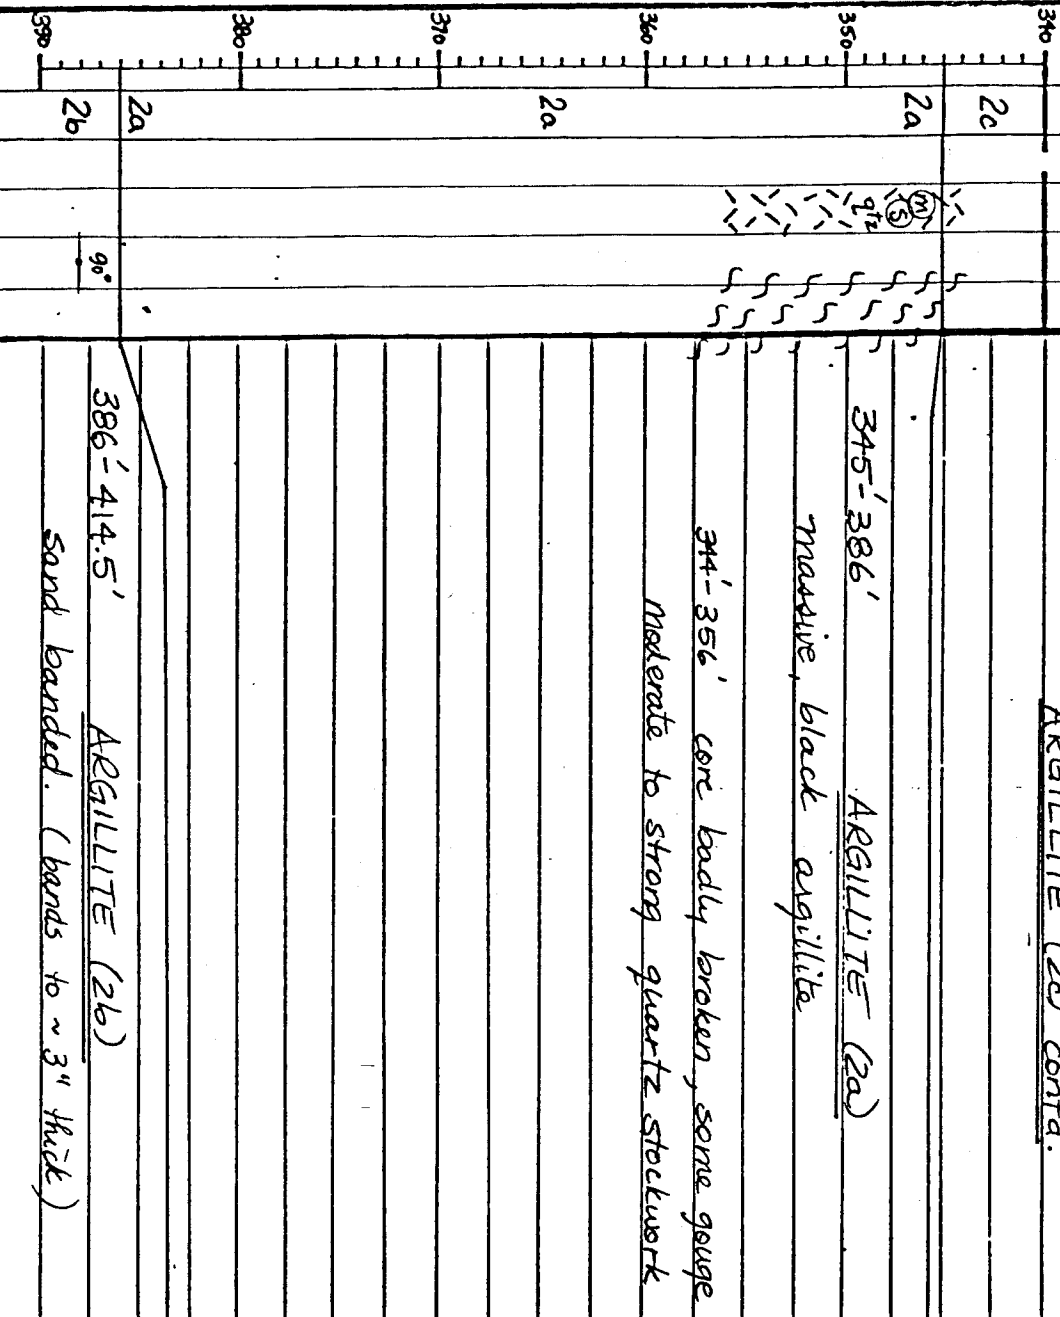 ARGILLITE (2c) contd.
340
350
360
370
380
390
2c
2a
2a
2a
2b
m
s
qtz
90°
345'-386' ARGILLITE (2a)
massive, black argillite
344'-356' core badly broken, some gouge
moderate to strong quartz stockwork
386'-414.5' ARGILLITE (2b)
sand banded. (bands to ~ 3" thick)